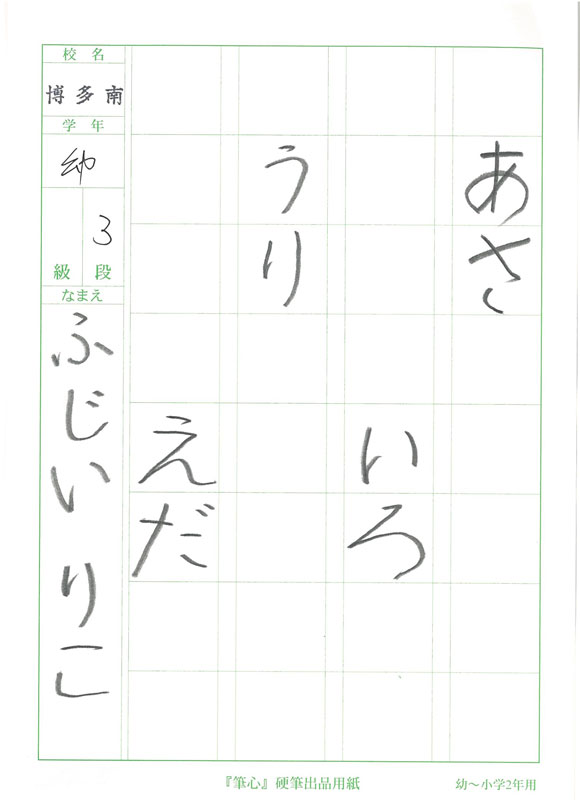 あさ
いろ
うり
えだ
校名
博多南
学年
幼
3
級 段
なまえ
ふじい りこ
『筆心』硬筆出品用紙
幼〜小学2年用